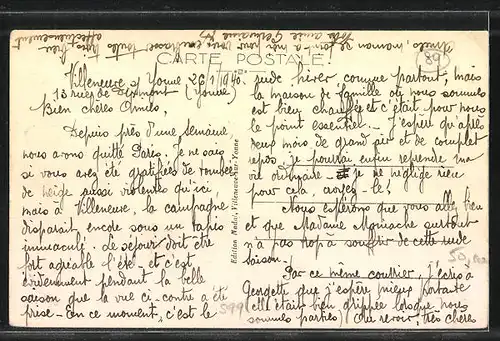 CARTE POSTALE
89
Villeneuve s/ Yonne 26/1/1940.
13 rue de Valprofond (Yonne)
Bien chères Amies,
Depuis près d'une semaine,
nous avons quitté Paris. Je ne sais
si vous avez été gratifiées de tombées
de neige aussi violentes qu'ici,
mais à Villeneuve, la campagne
disparaît encore sous un tapis
immaculé. Le séjour doit être
fort agréable l'été et c'est
évidemment pendant la belle
saison que la vue ci-contre a été
prise. En ce moment, c'est le
Edition Madel, Villeneuve-sur-Yonne
rude hiver comme partout, mais
la maison de famille où nous sommes
est bien chauffée et c'était pour nous
le point essentiel. J'espère qu'après
deux mois de grand air et de complet
repos, je pourrai enfin reprendre ma
vie ordinaire. Et je ne néglige rien
pour cela, croyez-le!
Nous espérons que vous allez bien
et que Madame surtout
n'a pas trop à souffrir de cette rude
saison.
Par ce même courrier, j'écris à
Georgette que j'espère mieux portante
(elle était bien grippée lorsque nous
sommes parties). Au revoir, très chères
Amies, maman se joint à moi pour vous embrasser toutes très bien
affectueusement.
Votre amie Germaine
599
50